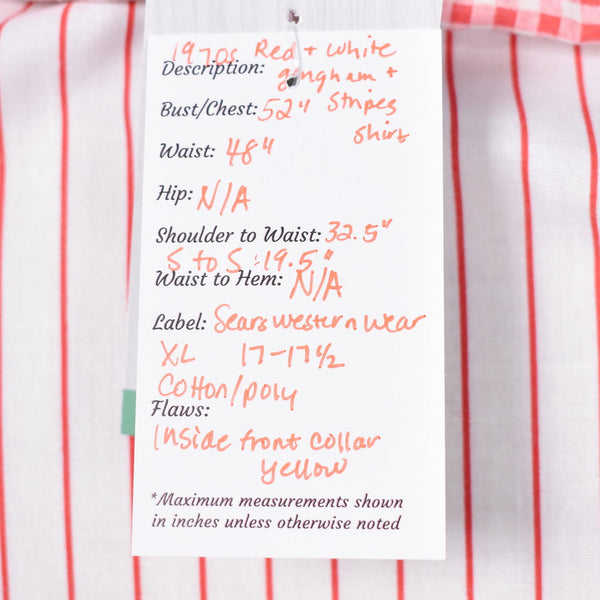 1970s Red + White
Description: gingham +
Bust/Chest: 52" Stripes
Shirt
Waist: 48"
Hip: N/A
Shoulder to Waist: 32.5"
S to S: 19.5"
Waist to Hem: N/A
Label: Sears western wear
XL 17-17 1/2
Cotton/poly
Flaws:
Inside front collar
yellow
*Maximum measurements shown
in inches unless otherwise noted